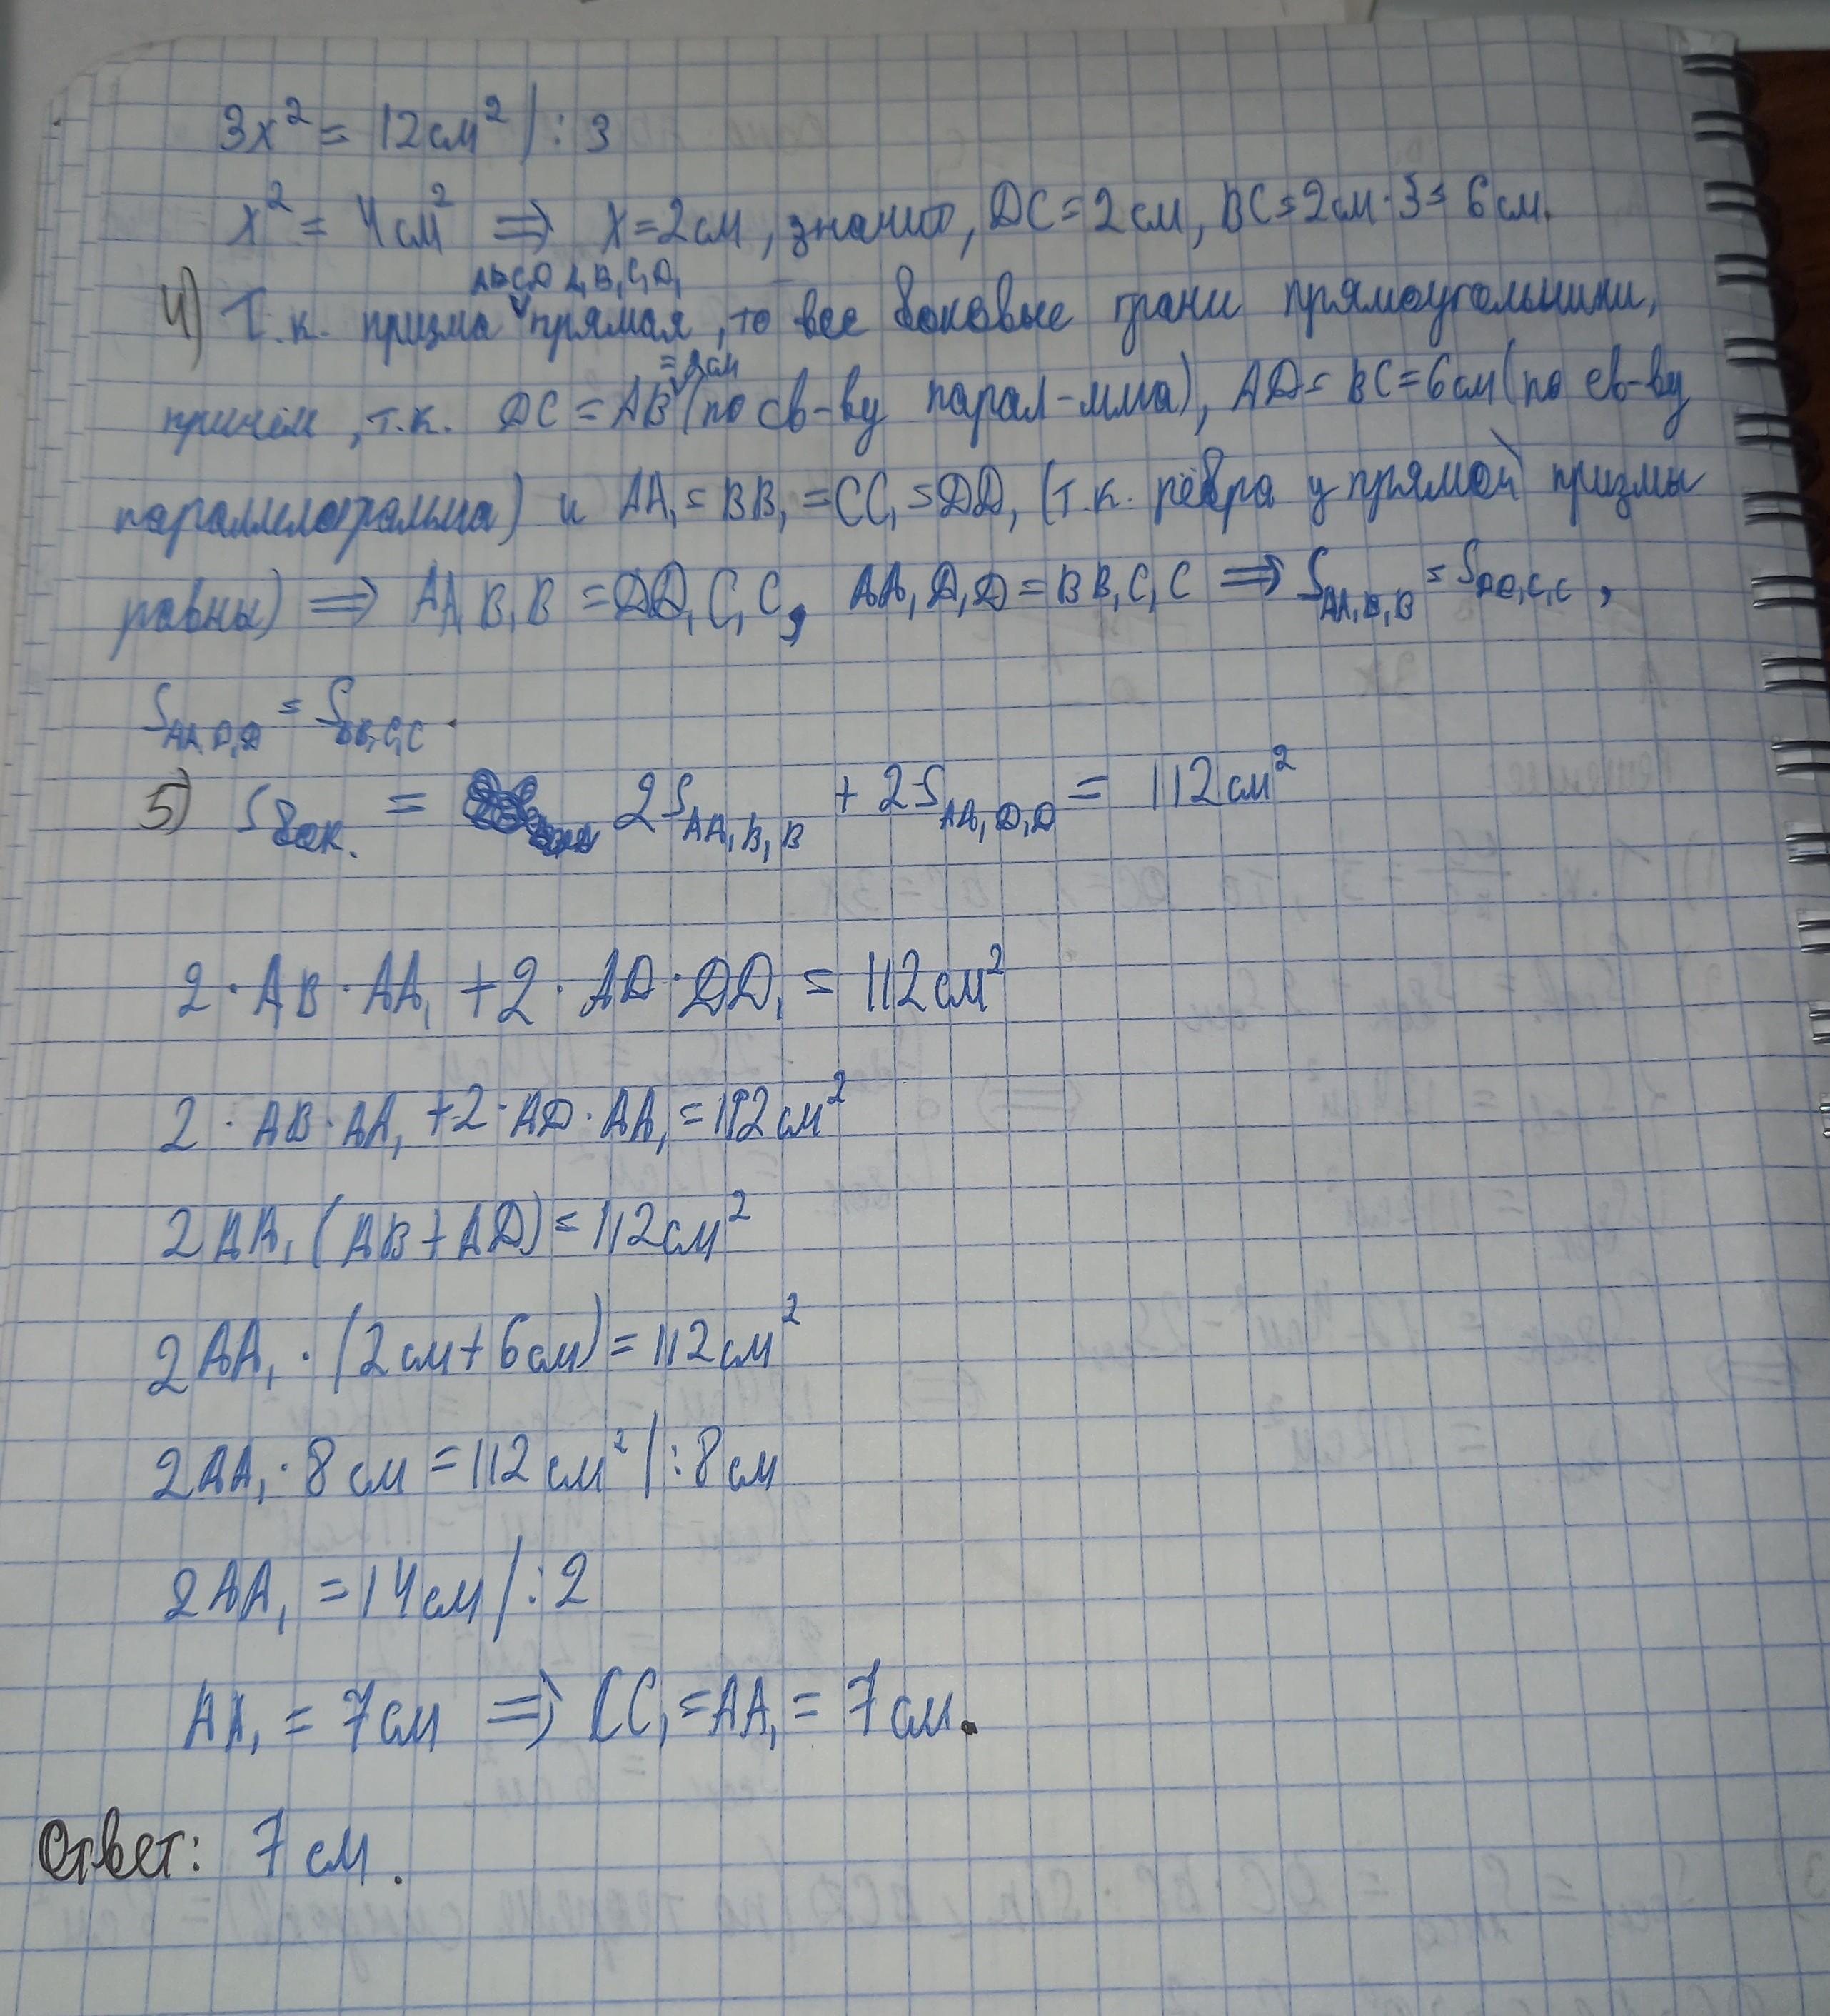 3x² = 12см² | : 3
x² = 4см² ⇒ x = 2см, значит, DC = 2см, BC = 2см · 3 = 6см.
ABCDA₁B₁C₁D₁
4) Т.к. призма прямая, то все боковые грани прямоугольники,
= 2см
причём, т.к. DC = AB (по св-ву парал-мма), AD = BC = 6см (по св-ву
параллелограмма) и AA₁ = BB₁ = CC₁ = DD₁ (т.к. рёбра у прямой призмы
равны) ⇒ AA₁B₁B = DD₁C₁C, AA₁D₁D = BB₁C₁C ⇒ S_AA₁B₁B = S_DD₁C₁C,
S_AA₁D₁D = S_BB₁C₁C.
5) S бок. = 2S_AA₁B₁B + 2S_AA₁D₁D = 112см²
2 · AB · AA₁ + 2 · AD · DD₁ = 112см²
2 · AB · AA₁ + 2 · AD · AA₁ = 112см²
2AA₁ (AB + AD) = 112см²
2AA₁ · (2см + 6см) = 112см²
2AA₁ · 8см = 112см² | : 8см
2AA₁ = 14см | : 2
AA₁ = 7см ⇒ CC₁ = AA₁ = 7см.
Ответ: 7см.